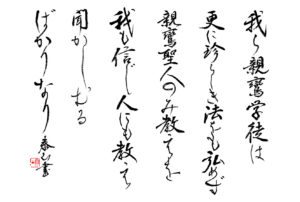 我ら親鸞学徒は
更に珍らしき法をも弘めず
親鸞聖人のみ教えを
我も信じ人にも教え
聞かしむる
ばかりなり